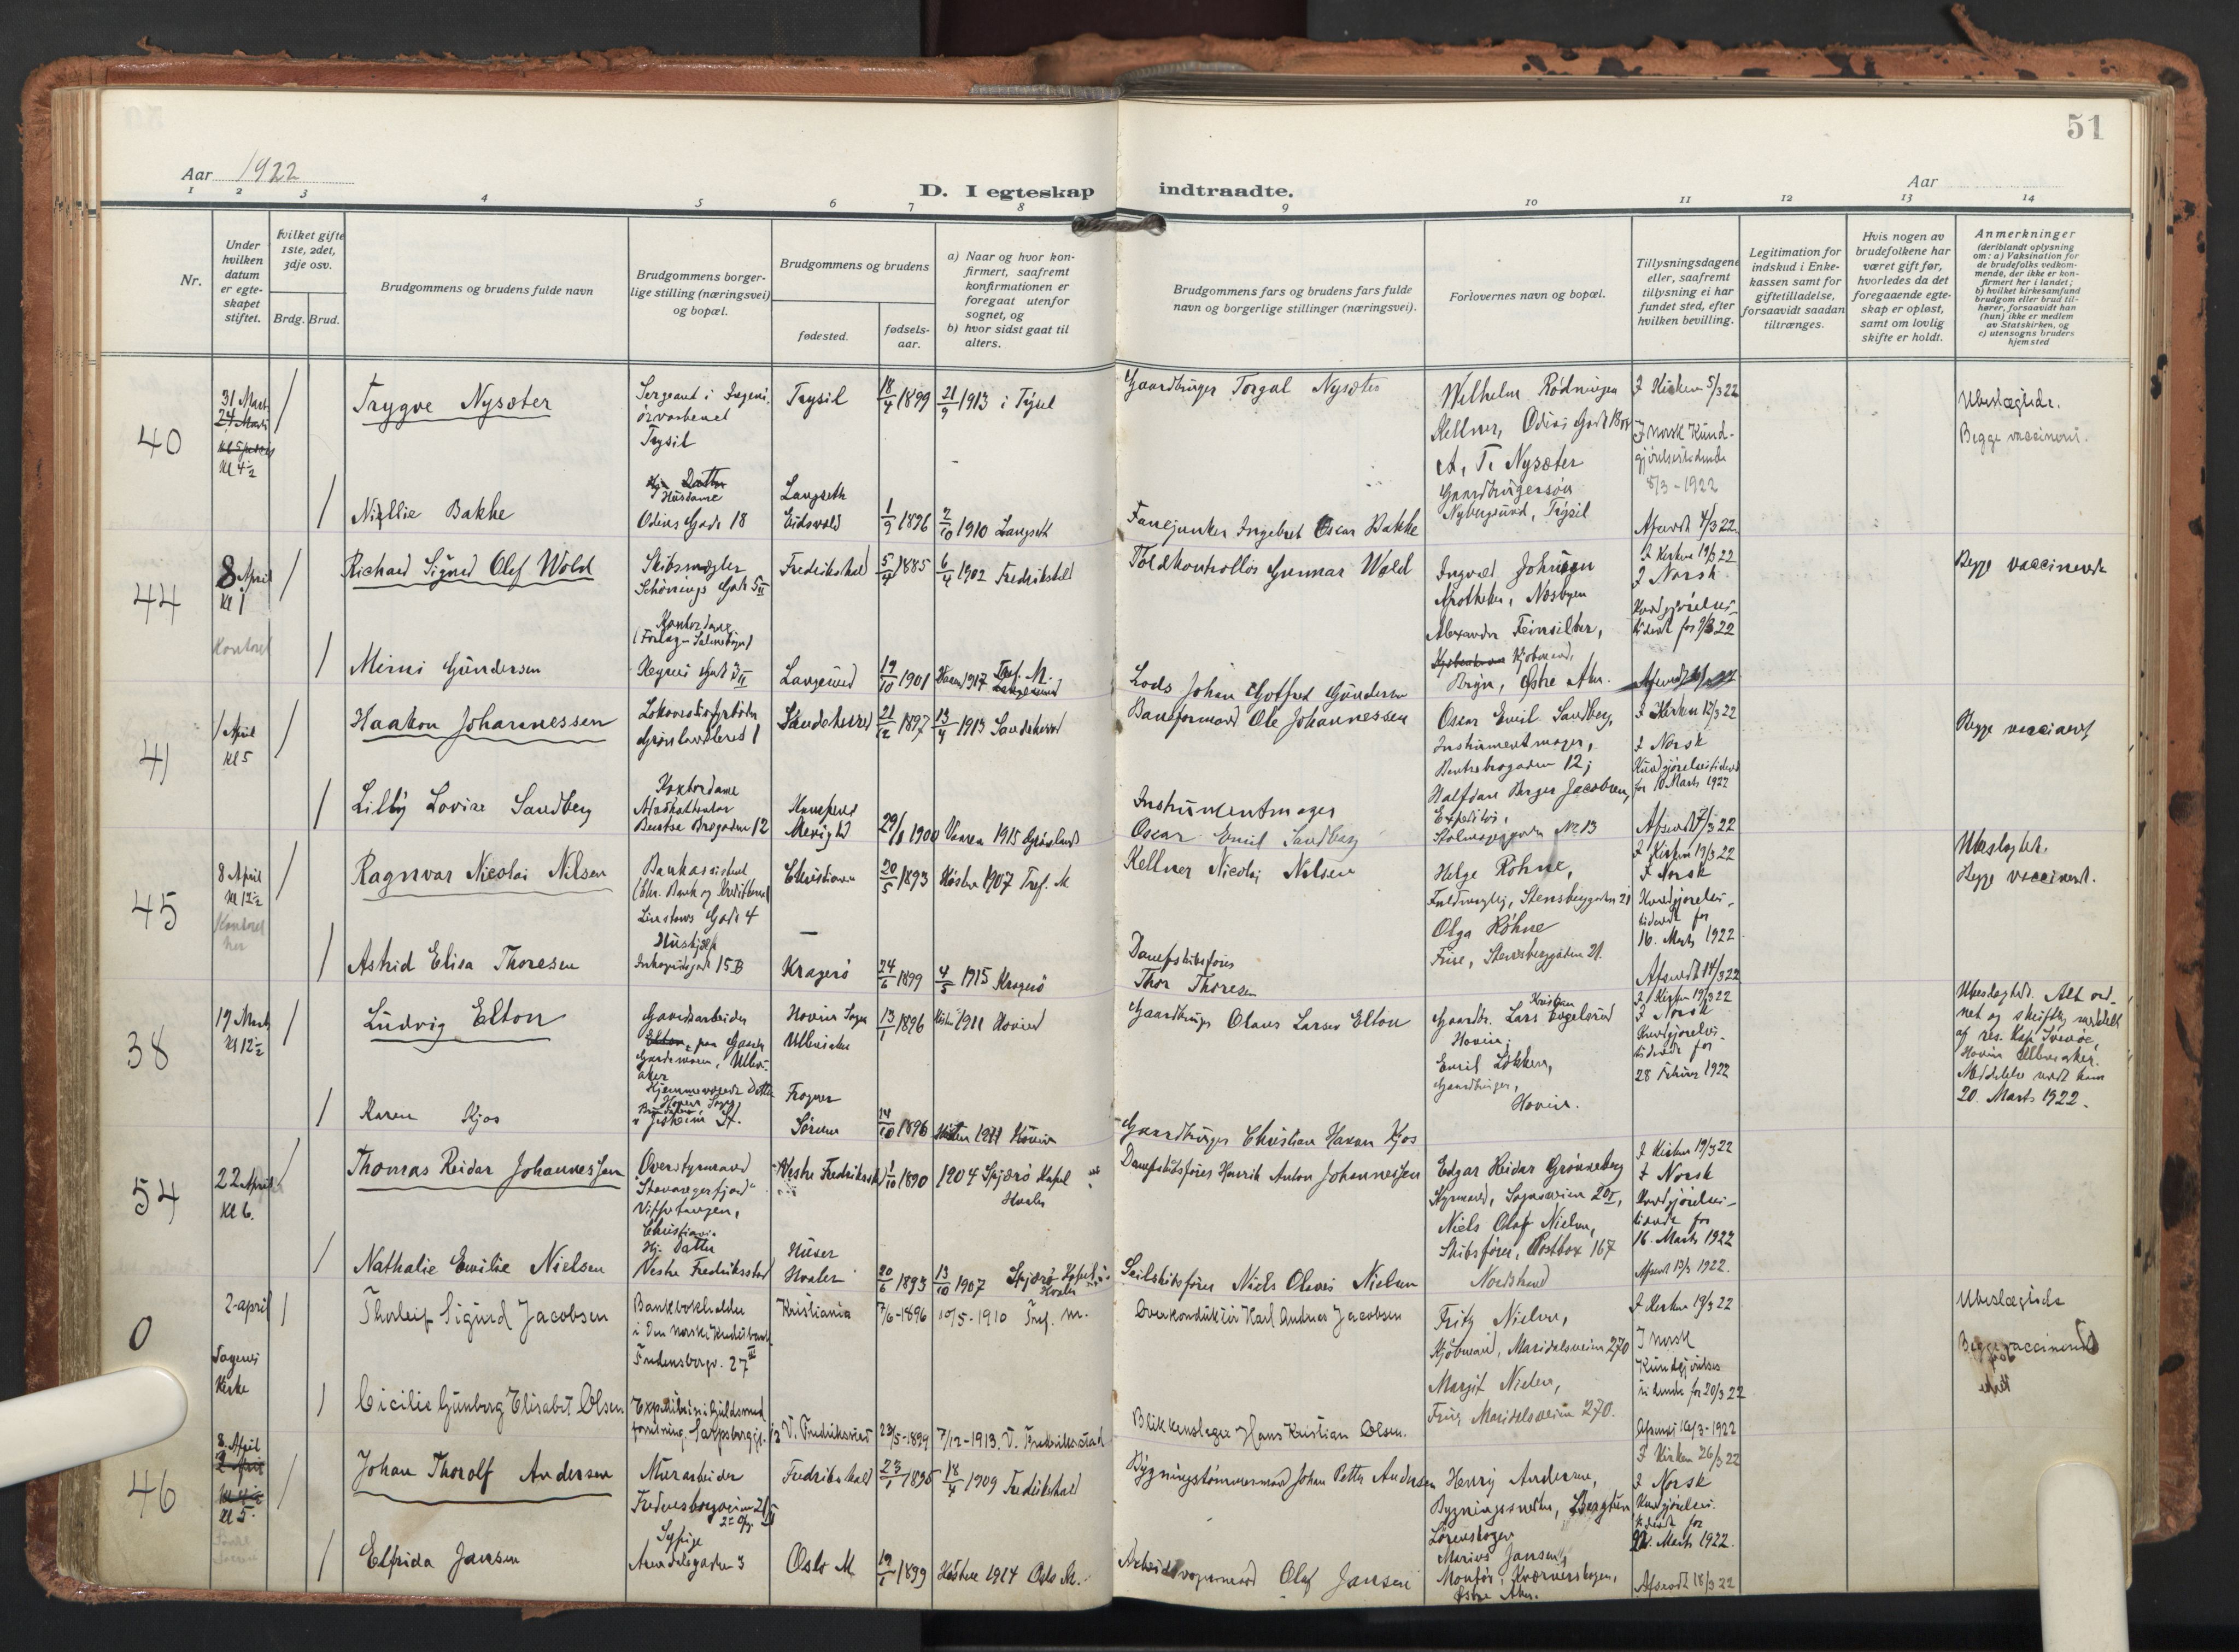 51
Aar 1922
D. I egteskap indtraadte.
Aar
1 2 3 4 5 6 7 8 9 10 11 12 13 14
Nr.
Under
hvilken
datum
er egte-
skapet
stiftet.
Hvilket gifte
1ste, 2det,
3dje osv.
Brdg. Brud.
Brudgommens og brudens fulde navn
Brudgommens borger-
lige stilling (næringsvei)
og bopæl.
Brudgommens og brudens
fødested.
fødsels-
aar.
a) Naar og hvor kon-
firmert, saafremt
konfirmationen er
foregaat utenfor
sognet, og
b) hvor sidst gaat til
alters.
Brudgommens fars og brudens fars fulde
navn og borgerlige stillinger (næringsvei).
Forlovernes navn og bopæl.
Tillysningsdagene
eller, saafremt
tillysning ei har
fundet sted, efter
hvilken bevilling.
Legitimation for
indskud i Enke-
kassen samt for
giftetilladelse,
forsaavidt saadan
tiltrænges.
Hvis nogen av
brudefolkene har
været gift før,
hvorledes da det
foregaaende egte-
skap er opløst,
samt om lovlig
skifte er holdt.
Anmerkninger
(deriblandt oplysning
om: a) Vaksination for
de brudefolks vedkom-
mende, der ikke er kon-
firmert her i landet;
b) hvilket kirkesamfund
brudgom eller brud til-
hører, forsaavidt han
(hun) ikke er medlem
av Statskirken, og
c) utensogns bruders
hjemsted
40
31 Marts
24 Marts
Kl 4½
Trygve Nysæter
Sergeant i Ingeni-
örvaabenet
Trysil
Trysil
18/4 1899
21/9 1913 i Trysil
Gaardbruger Torgal Nysæter
Wilhelm Rødningen
Kellner, Odins Gade 18
A. T. Nysæter
Gaardbrugersøn
Nybergsund, Trysil
I Kirken 5/3 22
I norsk Kund-
gjörelsestidende
8/3 - 1922
Afsendt 4/3 22
Ubeslægtede.
Begge vaccineret.
Niellie Bakke
Datter
Husdame
Odins Gade 18
Langseth
Eidsvold
1/9 1896
2/10 1910 Langseth
Fanejunker Ingebret Oscar Bakke
44
8 April
Kl 1
Kontoret
Richard Sigurd Olaf Wold
Skibsmægler
Schønings Gade 5 II
Fredrikshald
5/4 1885
6/4 1902 Fredrikshald
Toldkontrollör Gunnar Wold
Ingvald Johnsen
Apotheker, Næsbyen
Alexander Feinsilber,
Kjøbmand,
Bryn, Østre Aker.
I Kirken 19/3 22
I Norsk
Kundgjörelses-
tidende for 9/3 22
Begge vaccinerede
Mimi Gundersen
Kontordame
Heyners Gade 3 II
Langesund
19/10 1901
Vaaren 1917 Tref. M.
Lods Johan Gotfred Gundersen
41
1 April
Kl 5
Haakon Johannessen
Lokomotivfyrböter
Grønlandsleret 1
Sandeherred
21/12 1897
13/4 1913 Sandeherred
Baneformand Ole Johannessen
Oscar Emil Sandberg,
Instrumentmager,
Bentsebrogaden 12;
Halfdan Birger Jacobsen,
Expeditör,
Stolmagergaden No 13
I Kirken 12/3 22
I Norsk
Kundgjörelsestidende
for 10 Marts 1922
Afsendt 7/3 22
Begge vaccineret
Lilly Lovise Sandberg
Kontordame
Bentse Brogaden 12
29/8 1900
Vaaren 1915 Grönland
Instrumentmager
Oscar Emil Sandberg
45
8 April
Kl 12½
Kontoret
her
Ragnvar Nicolai Nilsen
Bankassistent
(Chr. Bank og Kreditkasse)
Linstows Gade 4
Christiania
20/5 1893
Høsten 1907 Tref. M
Kellner Nicolaj Nilsen
Helge Röhne,
Fuldmægtig, Stensberggaden 21
Olga Röhne
Frue, Stensberggaden 21.
I Kirken 19/3 22
I Norsk
Kundgjörelses-
tidende for
16. Marts 1922
Afsendt 14/3 22
Ubeslægtede.
Begge vaccineret.
Astrid Elisa Thoresen
Hushjelp
Inkognitogade 15 B
Kragerö
24/6 1899
4/5 1915 Kragerö
Dampskibsförer
Thor Thoresen
38
19 Marts
Kl 12½
Ludvig Elton
Gaardsarbeider
paa Gaarden
Gardemoen, Ullens-
aker
Hovin Sogn
Ullensaker
13/1 1896
Høsten 1911 Hovind
Gaardbruger Olaus Larsen Elton
Gaardbr. Lars Kristian Engelsrud
Hovin;
Emil Løkken,
Gaardbruger,
Hovin.
I Kirken 19/3 22
I Norsk
Kundgjörelses-
tidende for
28 Februar 1922
Ubeslægtede. Alt ord-
net og skriftlig meddelt
af res. Kap.
Hovin Ullensaker.
Meddelelse sendt ham
20. Marts 1922.
Karen Kjos
Hjemmeværende Datter
Hovin Sogn
Jesheim St.
Frogner
Sörum
14/10 1896
Høsten 1911 Hovin
Gaardbruger Christian Hansen Kjos
54
22 April
Kl 6.
Thomas Reidar Johannessen
Overstyrmand
"Stavangerfjord"
Vippetangen,
Christiania
Vestre Fredriksstad
1/10 1890
1904 Spjærö Kapel
Hvaler
Dampskibsförer Henrik Anton Johannessen
Edgar Reidar Grönneberg
Styrmand, Sognsveien 20 I,
Niels Olaf Nielsen,
Skibsförer, Postbox 167
Nordstrand
I Kirken 19/3 22
I Norsk
Kundgjörelses-
tidende for
16. Marts 1922
Afsendt 13/3 1922.
Nathalie Emilie Nielsen
Hj. Datter
Vestre Fredriksstad
Huser
Hvaler
20/6 1893
13/10 1907
Spjærö Kapel
Hvaler
Seilskibsförer Niels Olaves Nielsen
0
2-april
Fagernes
Kirke
Thorleif Sigurd Jacobsen
Bankbokholder
i Den norske Kreditbank
Fredensborgv. 27 III
Kristiania
7/6-1896
10/5-1910 Tref. m.
Overkonduktör Karl Andreas Jacobsen
Fritz Nielsen,
Kjöbmand, Maridalsveien 270
Margit Nielsen,
Frue, Maridalsveien 270.
I Kirken 19/3 22
I norsk
Kundgjörelses
tidende for 20/3 22
Afsendt 16/3-1922
Ubeslægtede
Begge vaccinerede
Cicilie Gunborg Elisabet Olsen
Expeditrise i Guldsmed
forretning. Sarpsborggt. 12
V. Fredriksstad
23/5-1899
7/12-1913. V. Fredrikstad
Blikkenslager Hans Kristian Olsen.
46
8. April
2 April
Kl 5.
Johan Thorolf Andersen
Murarbeider
Fredensborgveien 21 II
2den Opg.
Fredrikshald
23/1 1895
18/4 1909 Fredrikshald
Bygningstömmermand Johan Petter Andersen
Henry Andersen,
Bygningssnekker, Bergtun,
Lörenskogen
Marius Jansen,
Montör, Kværnerskogen,
Østre Aker.
I Kirken 26/3 22
I Norsk
Kundgjörelses-
tidende for
22. Marts 1922.
Afsendt 18/3 22
Elfrida Jansen
Sypige
Arendalsgaden 3
Oslo M
19/1 1899
Høsten 1914 Oslo M.
Arbeidsformand Olaf Jansen